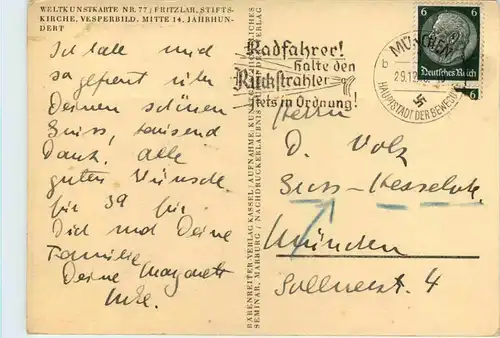 WELTKUNSTKARTE NR. 77 / FRITZLAR, STIFTS-
KIRCHE, VESPERBILD. MITTE 14. JAHRHUN-
DERT
Ich habe mich
so gefreut über
Deinen schönen
Gruss, tausend
Dank. Alle
guten Wünsche
für 39 für
Dich und Deine
Familie
Deine Margarete
BÄRENREITER-VERLAG KASSEL / AUFNAHME, KUNSTGESCHICHTLICHES
SEMINAR, MARBURG / NACHDRUCKERLAUBNIS
Radfahrer!
halte den
Rückstrahler
stets in Ordnung!
MÜNCHEN
b
29.12.
HAUPTSTADT DER BEWEGUNG
6
6
Deutsches Reich
6
Herrn
D. Volz
München
4